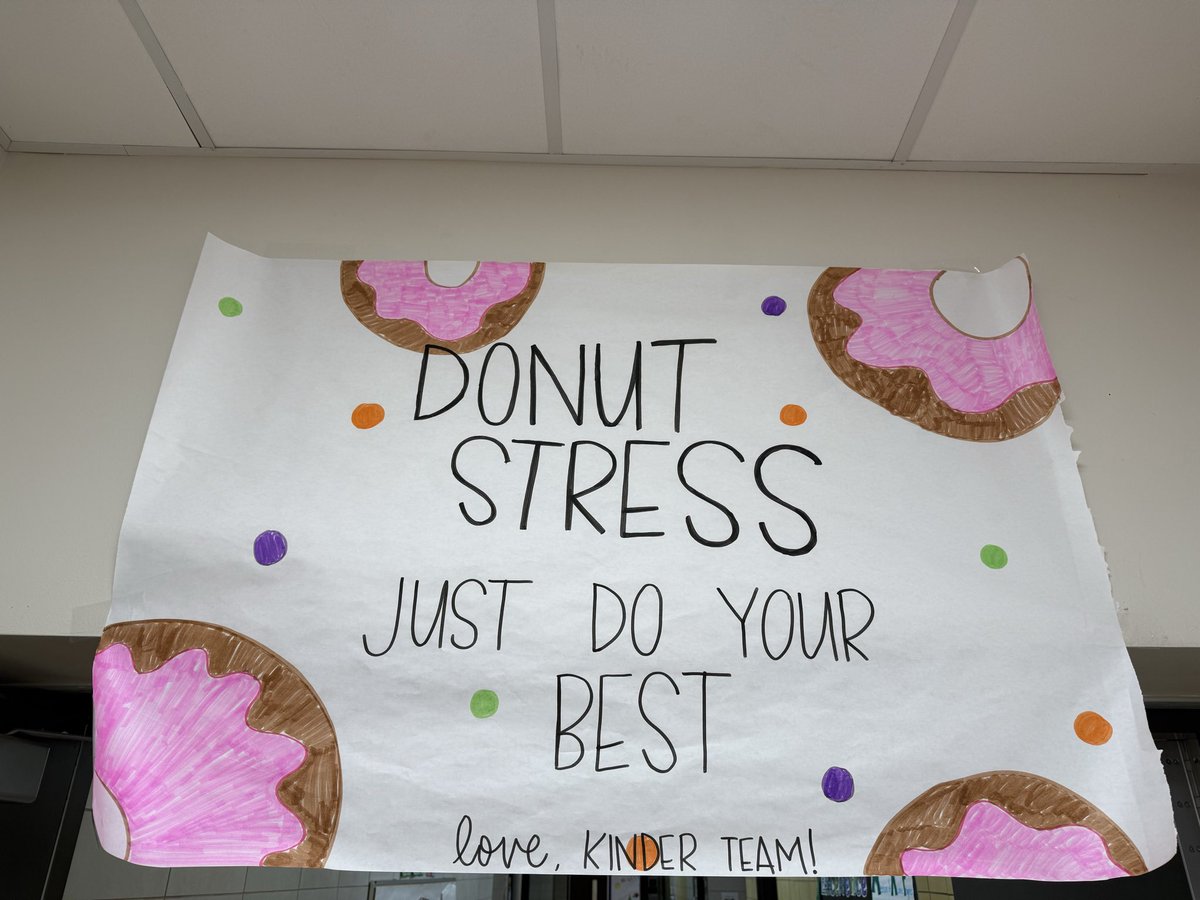 DONUT
STRESS
JUST DO YOUR
BEST
love, KINDER TEAM!